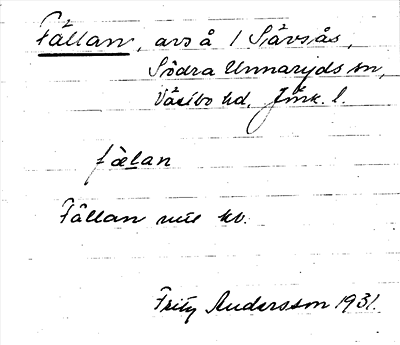 Fällan, avs å 1 Sävsås,
Södra Unnaryds sn,
Västbo hd, Jönk. l.
fælan
Fällan mil kv.
Fritz Andersson 1931.